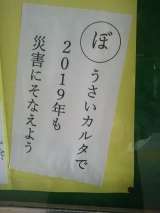 ぼ
うさいカルタで
2019年も
災害にそなえよう